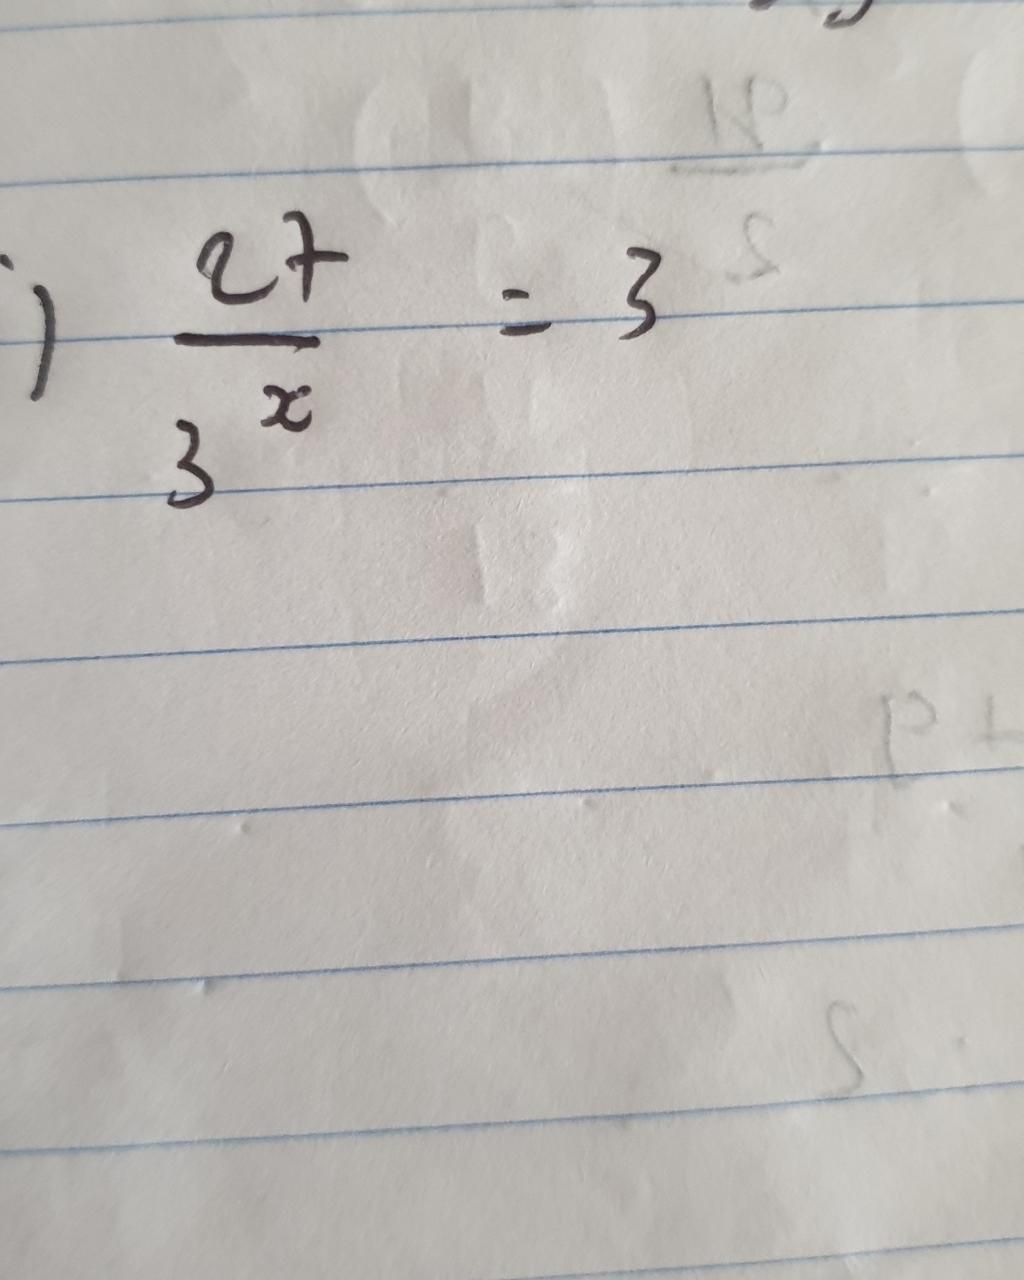 i) 27/3^x = 3